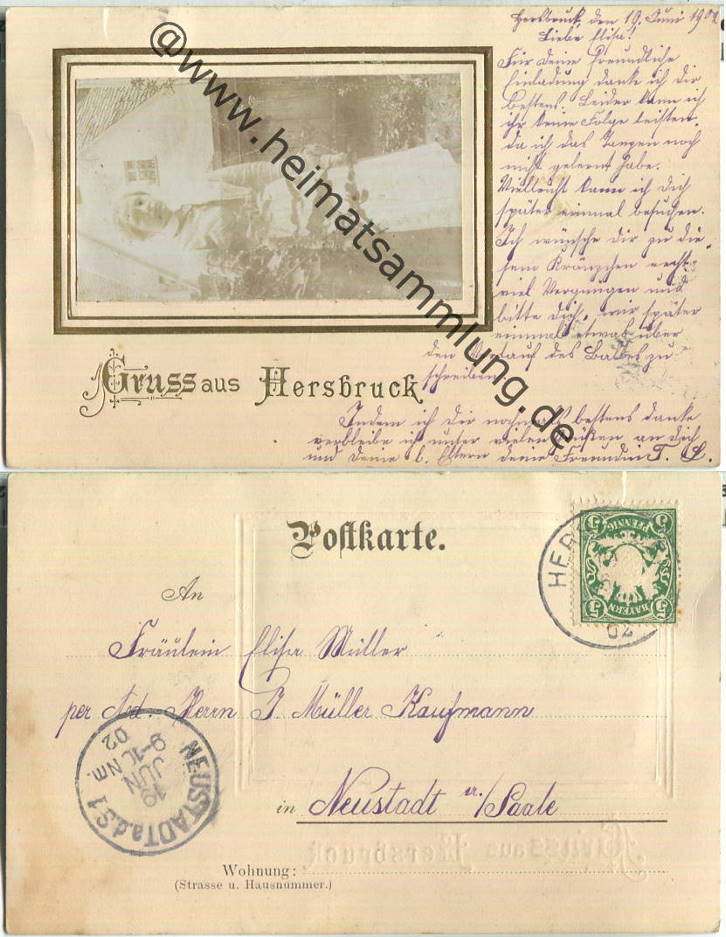 Hersbruck, den 19. Juni 1902
Liebe Elisa!
Für deine freundliche
Einladung danke ich dir
bestens. Leider kann ich
ihr keine Folge leisten,
da ich das Tanzen noch
nicht gelernt habe.
Vielleicht kann ich dich
später einmal besuchen.
Ich wünsche dir zu die-
sem Kränzchen recht
viel Vergnügen und
bitte dich, mir später
einmal etwas über
den Verlauf des Balles zu
schreiben.
Indem ich dir nochmals bestens danke
verbleibe ich unter vielen Grüßen an dich
und deine l. Eltern deine Freundin T. L.
@www.heimatsammlung.de
Gruss aus Hersbruck
Postkarte.
An
Fräulein Elisa Müller
per Ad. Herrn J Müller Kaufmann
in Neustadt a/Saale
Wohnung:
(Strasse u. Hausnummer.)
NEUSTADT a.d.S. 1
19
JUN
9-10 Nm.
02
HER
02
5 PFENNIG 5
5 BAYERN 5
Gruss aus Hersbruck